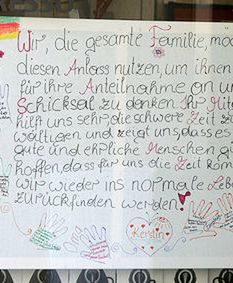 Wir, die gesamte Familie, möc
diesen Anlass nutzen, um ihnen
für ihre Anteilnahme an un
Schicksal zu denken. Ihr Mite
hilft uns sehr, die schwere Zeit zu
wältigen und zeigt uns, dass es
gute und ehrliche Menschen g
hoffen, dass für uns die Zeit kom
wir wieder ins normale Leb
zurückfinden werden!
Kerstin